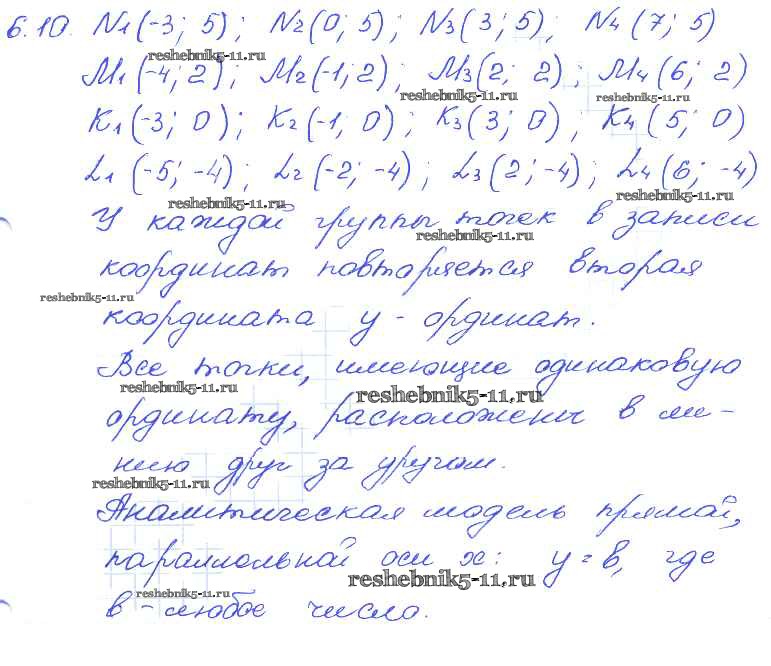 6.10. N1(-3; 5); N2(0; 5); N3(3; 5); N4(7; 5)
reshebnik5-11.ru
M1(-4; 2); M2(-1; 2); M3(2; 2); M4(6; 2)
reshebnik5-11.ru reshebnik5-11.ru
K1(-3; 0); K2(-1, 0); K3(3; 0); K4(5; 0)
L1(-5; -4); L2(-2; -4); L3(2; -4); L4(6; -4)
reshebnik5-11.ru reshebnik5-11.ru
У каждой группы точек в записи
reshebnik5-11.ru
координат повторяется вторая
reshebnik5-11.ru
координата y - ординат.
Все точки, имеющие одинаковую
reshebnik5-11.ru reshebnik5-11.ru
ординату, расположены в ли-
нию друг за другом.
reshebnik5-11.ru
Аналитическая модель прямой,
параллольной оси x: y = в, где
reshebnik5-11.ru reshebnik5-11.ru
в - любое число.